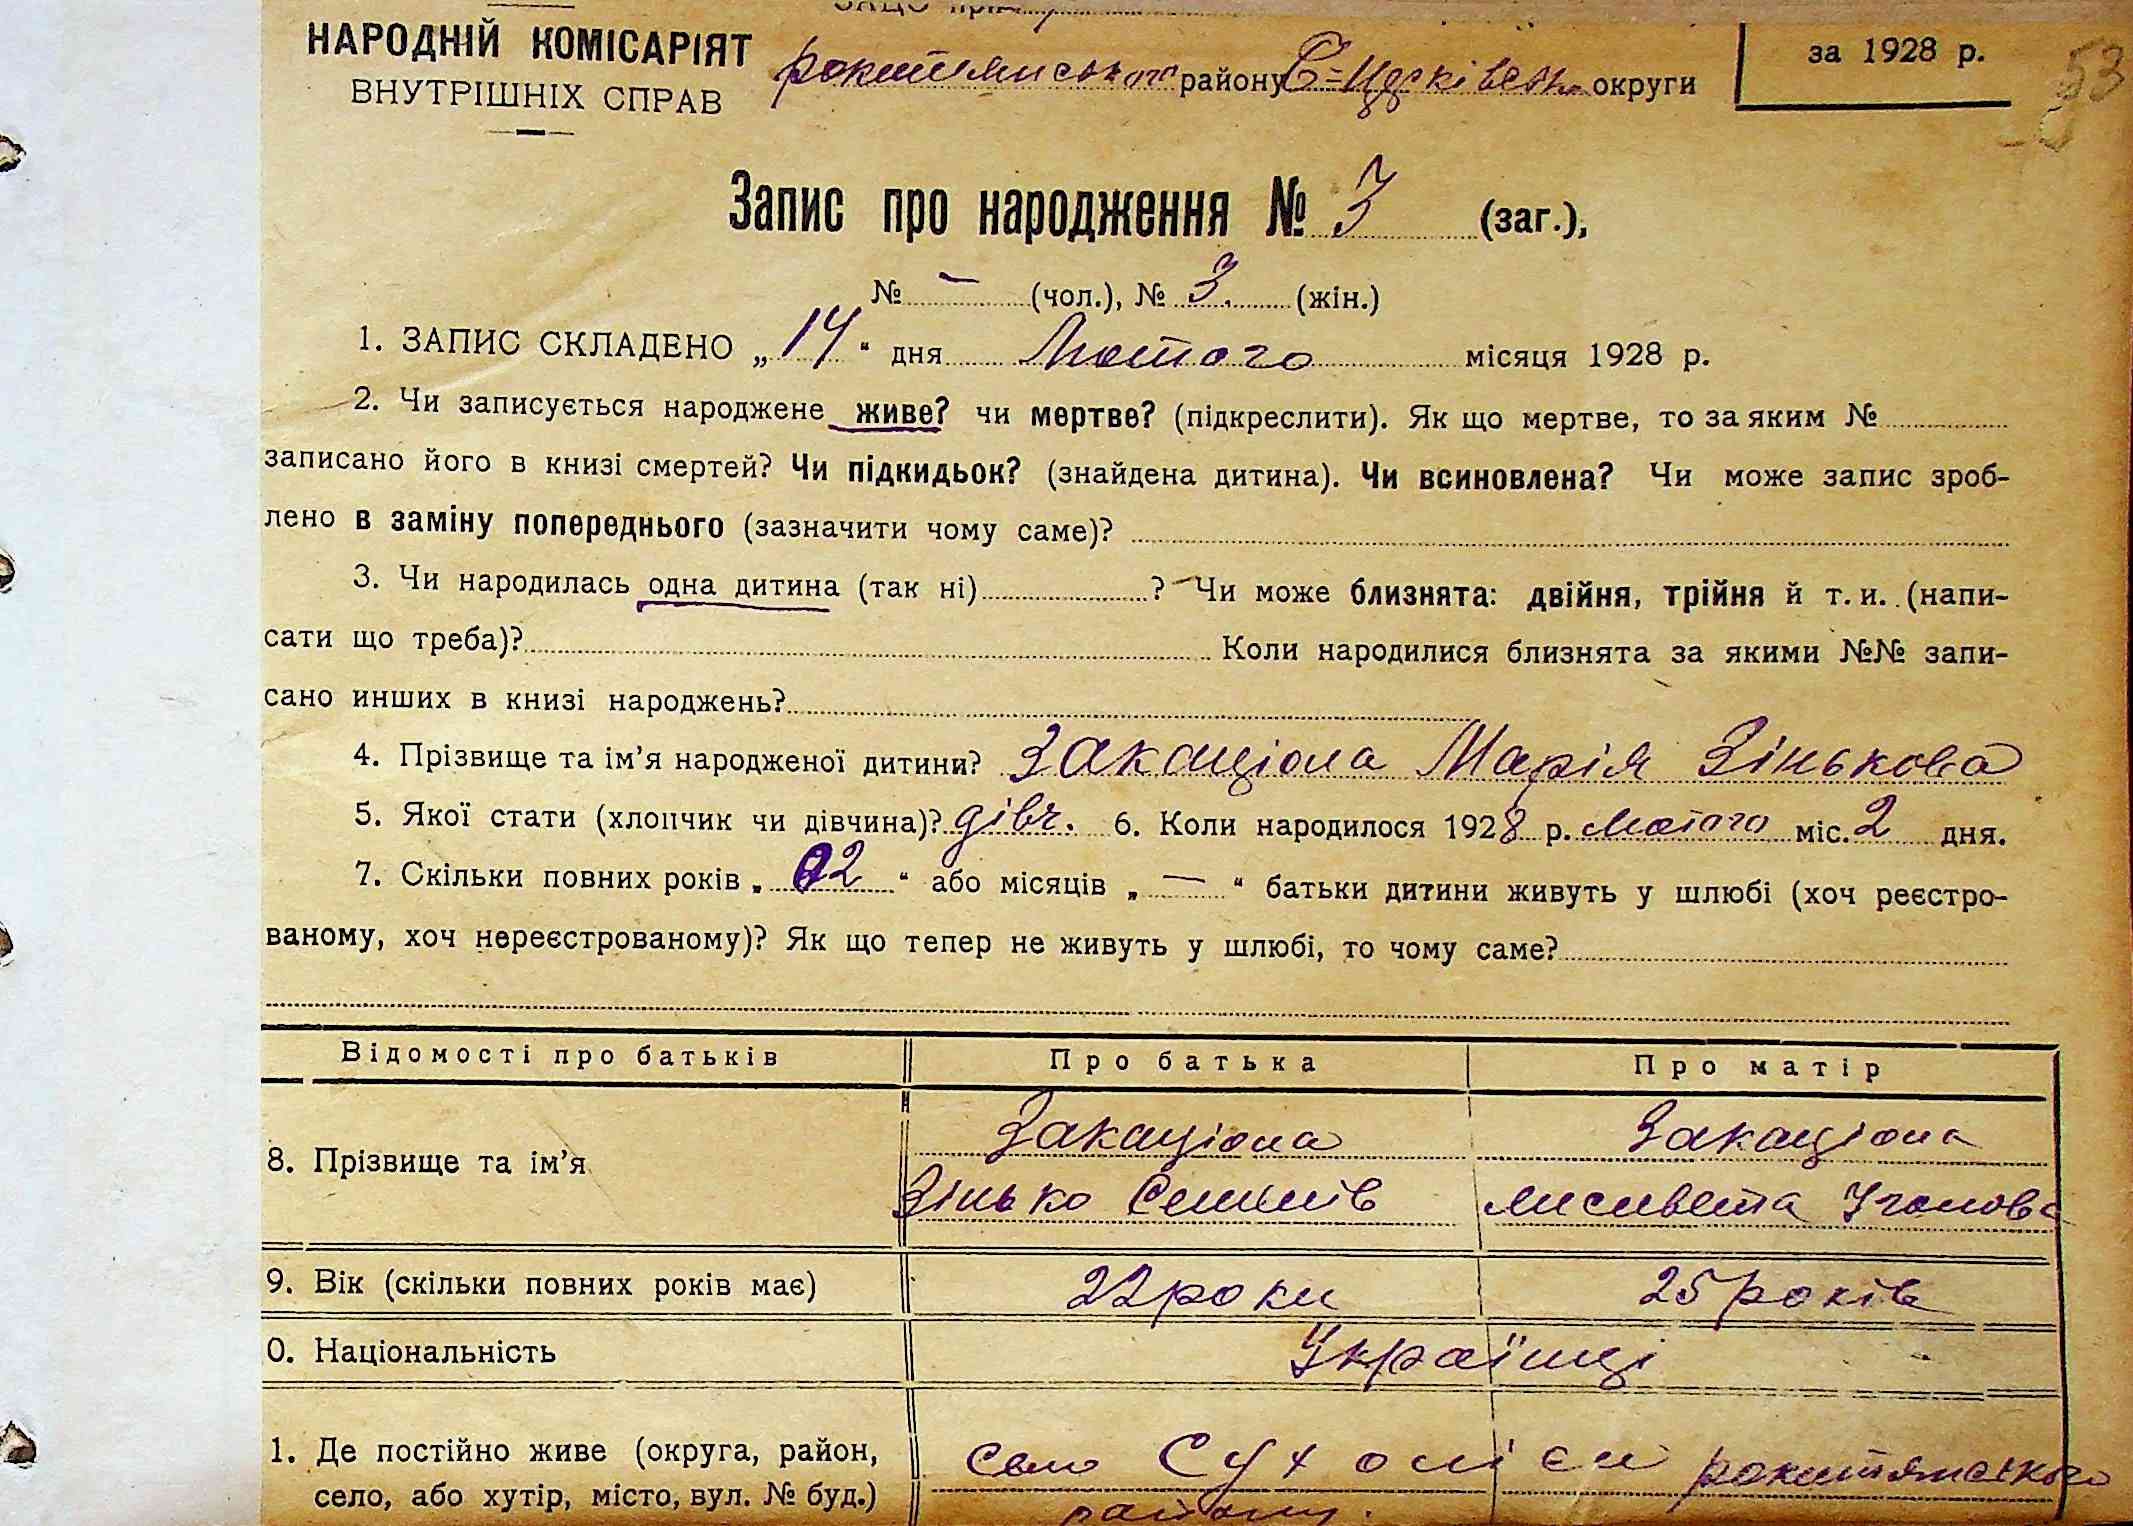 НАРОДНІЙ КОМІСАРІЯТ
ВНУТРІШНІХ СПРАВ
рокитянського району Б=Церківськ. округи
за 1928 р.
53
Запис про народження № 3 (заг.),
№ — (чол.), № 3. (жін.)
1. ЗАПИС СКЛАДЕНО „14“ дня Лютого місяця 1928 р.
2. Чи записується народжене живе? чи мертве? (підкреслити). Як що мертве, то за яким №
записано його в книзі смертей? Чи підкидьок? (знайдена дитина). Чи всиновлена? Чи може запис зроб-
лено в заміну попереднього (зазначити чому саме)?
3. Чи народилась одна дитина (так ні) ? Чи може близнята: двійня, трійня й т. и. (напи-
сати що треба)? Коли народилися близнята за якими №№ запи-
сано инших в книзі народжень?
4. Прізвище та ім’я народженої дитини? Закаціола Марія Зінькова
5. Якої стати (хлопчик чи дівчина)? дівч. 6. Коли народилося 1928 р. Лютого міс. 2 дня.
7. Скільки повних років „ 2 “ або місяців „ — “ батьки дитини живуть у шлюбі (хоч реєстро-
ваному, хоч нереєстрованому)? Як що тепер не живуть у шлюбі, то чому саме?
Відомості про батьків Про батька Про матір
8. Прізвище та ім’я Закаціола Закаціола
Зінько Семенів Лисивета
9. Вік (скільки повних років має) 22 роки 25 років
0. Національність Українці
1. Де постійно живе (округа, район, село Сухоліси рокитянського
село, або хутір, місто, вул. № буд.) району.